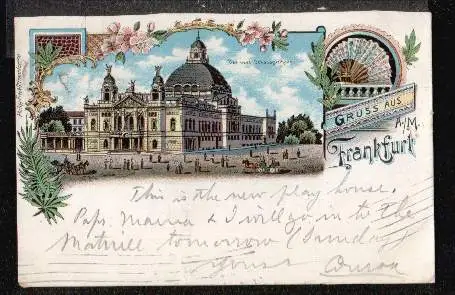 Das neue Schauspielhaus
GRUSS AUS
Frankfurt
A/M.
This is the new play house.
Papa Mama & I will go in to the
tomorrow (Sunday)
Yours